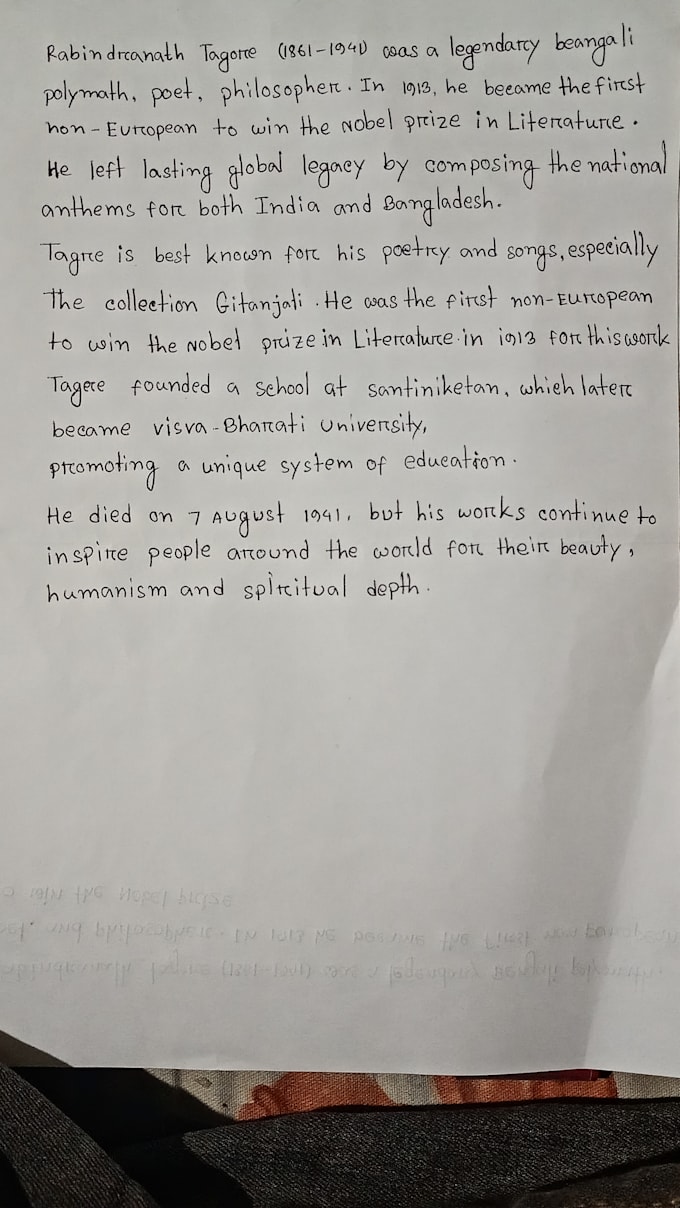 Rabindranath Tagore (1861-1941) was a legendary beangali
polymath, poet, philosopher. In 1913, he became the first
non-European to win the Nobel prize in Literature.
He left lasting global legacy by composing the national
anthems for both India and Bangladesh.
Tagre is best known for his poetry and songs, especially
The collection Gitanjali. He was the first non-European
to win the Nobel prize in Literature in 1913 for this work
Tagere founded a school at santiniketan, which later
became visva-Bharati University,
promoting a unique system of education.
He died on 7 August 1941, but his works continue to
inspire people around the world for their beauty,
humanism and spiritual depth.